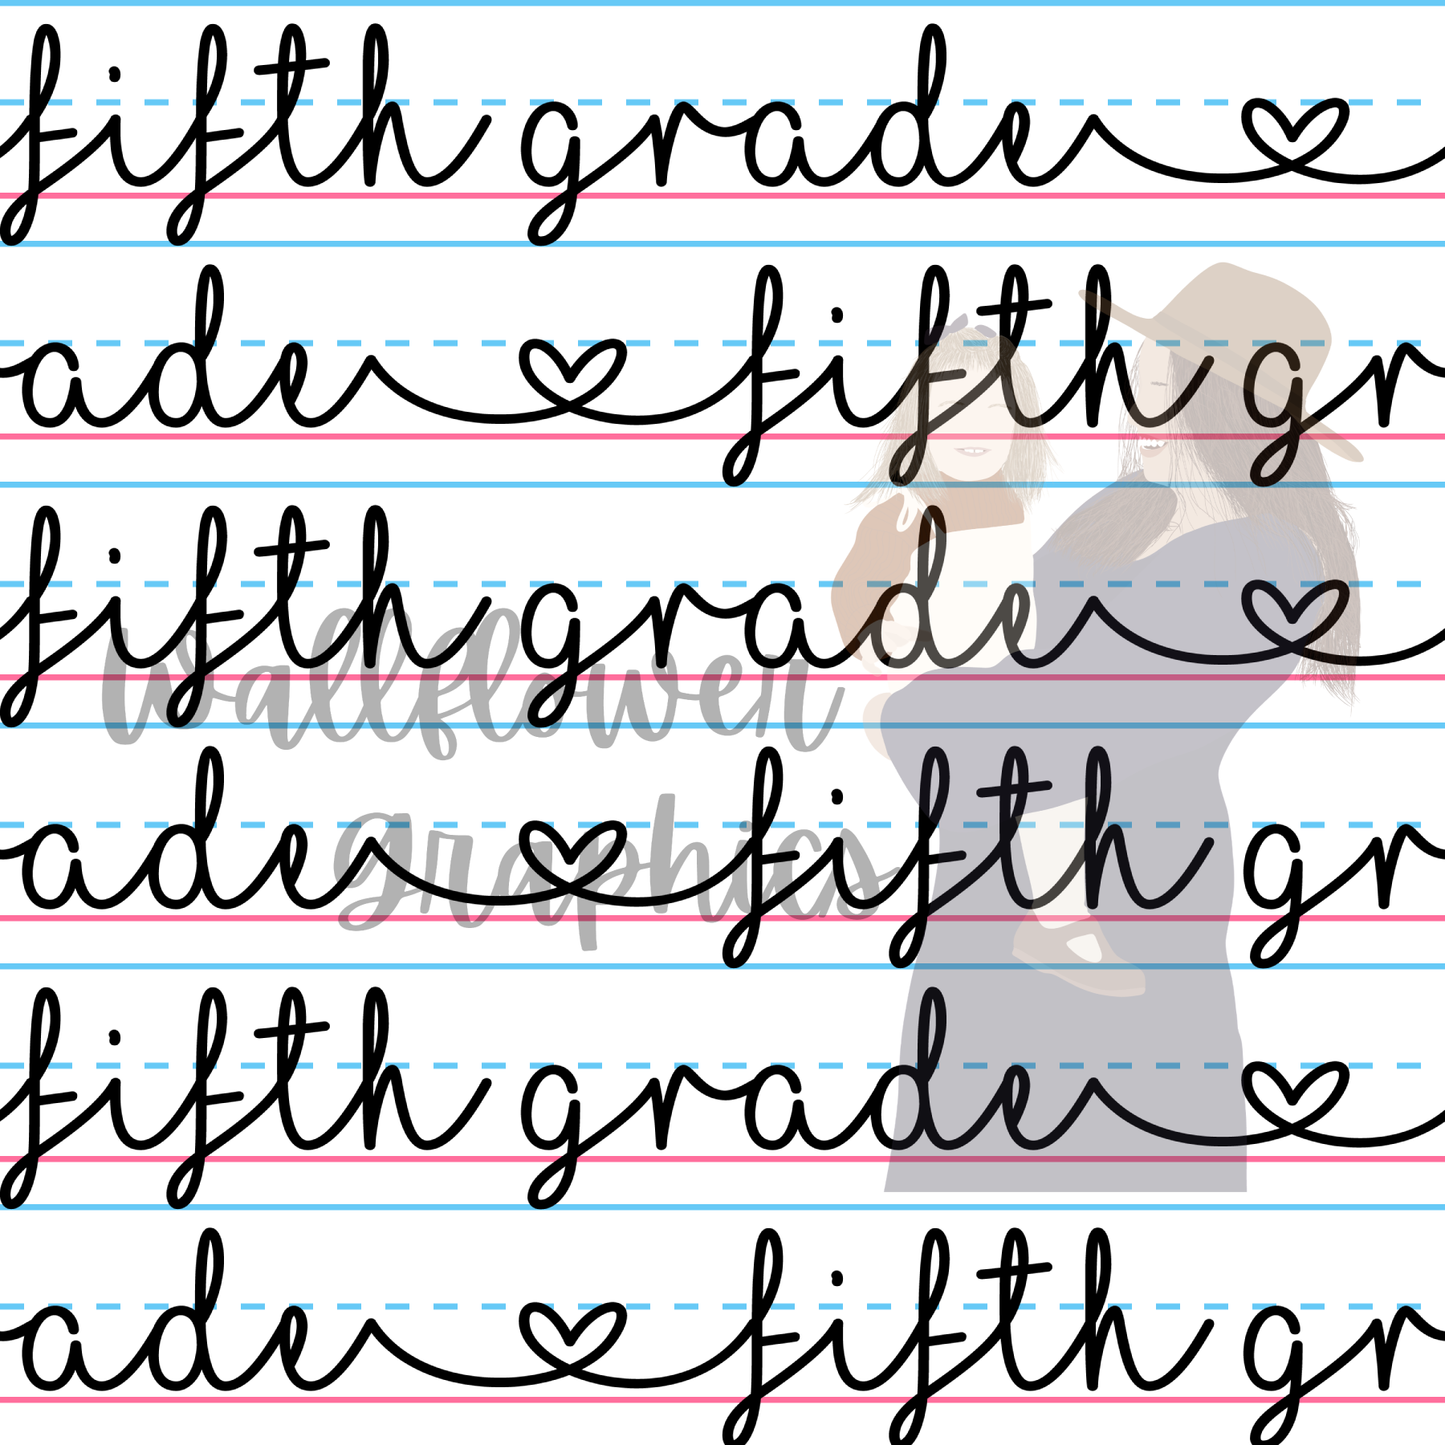 fifth grade
ade fifth gr
fifth grade
Wallflower
ade fifth gr
graphics
fifth grade
ade fifth gr